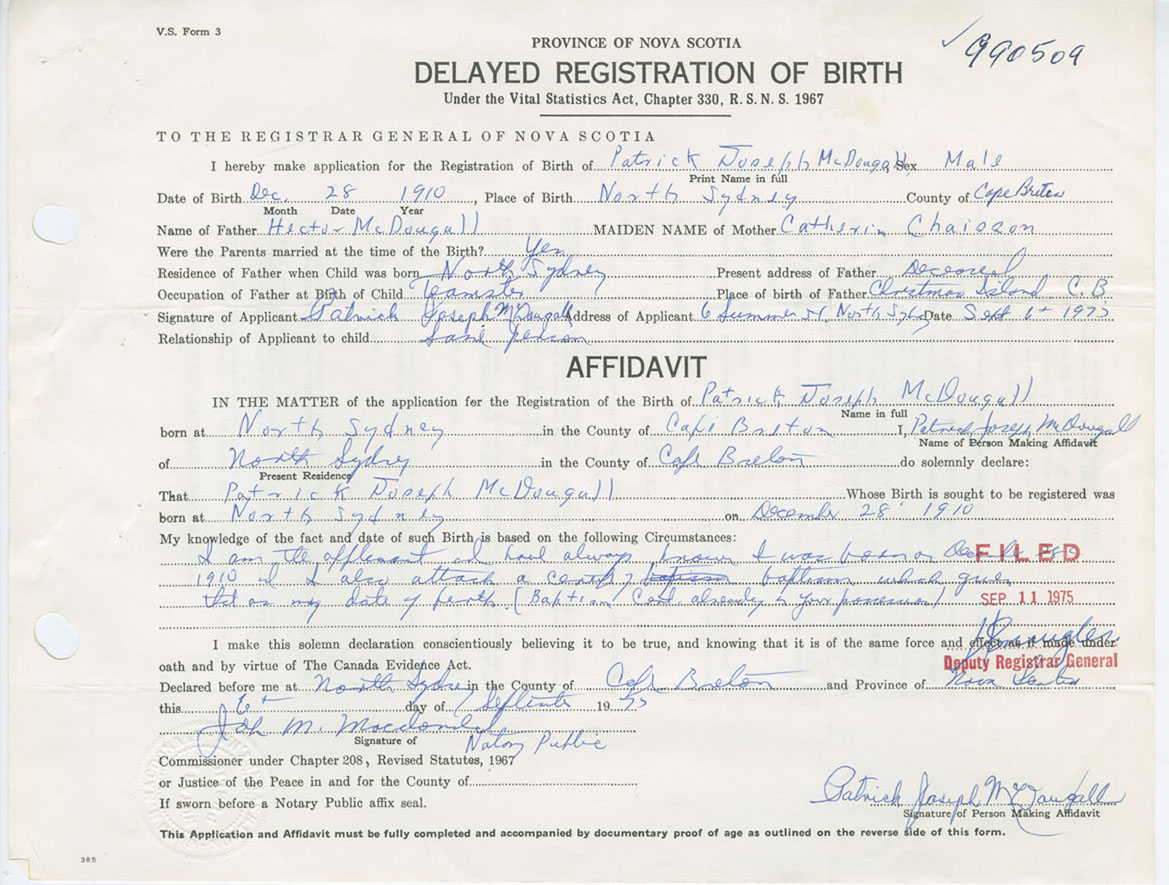 V.S. Form 3
✓ 990509
PROVINCE OF NOVA SCOTIA
DELAYED REGISTRATION OF BIRTH
Under the Vital Statistics Act, Chapter 330, R.S.N.S. 1967
TO THE REGISTRAR GENERAL OF NOVA SCOTIA
I hereby make application for the Registration of Birth of Patrick Joseph McDougall Sex Male
Print Name in full
Date of Birth Dec. 28 1910, Place of Birth North Sydney County of Cape Breton
Month Date Year
Name of Father Hector McDougall MAIDEN NAME of Mother Catherin Chaisson
Were the Parents married at the time of the Birth? Yes
Residence of Father when Child was born North Sydney Present address of Father Deceased
Occupation of Father at Birth of Child Teamster Place of birth of Father Christmas Island C.B.
Signature of Applicant Patrick Joseph McDougall Address of Applicant 6 Summer St, North Sydney Date Sept 6th 1975
Relationship of Applicant to child Same person
AFFIDAVIT
IN THE MATTER of the application for the Registration of the Birth of Patrick Joseph McDougall
Name in full
born at North Sydney in the County of Cape Breton I, Patrick Joseph McDougall
Name of Person Making Affidavit
of North Sydney in the County of Cape Breton do solemnly declare:
Present Residence
That Patrick Joseph McDougall Whose Birth is sought to be registered was
born at North Sydney on December 28 1910
My knowledge of the fact and date of such Birth is based on the following Circumstances:
I am the applicant I have always known I was born on Dec 28
FILED
1910 & I also attach a baptism which gives
that as my date of birth. (Baptism Cert. already in your possession)
SEP 11 1975
I make this solemn declaration conscientiously believing it to be true, and knowing that it is of the same force and effect as if made under
oath and by virtue of The Canada Evidence Act.
Deputy Registrar General
Declared before me at North Sydney in the County of Cape Breton and Province of Nova Scotia
this 6th day of September 1975
Signature of Notary Public
Commissioner under Chapter 208, Revised Statutes, 1967
or Justice of the Peace in and for the County of
If sworn before a Notary Public affix seal.
Patrick Joseph McDougall
Signature of Person Making Affidavit
This Application and Affidavit must be fully completed and accompanied by documentary proof of age as outlined on the reverse side of this form.
385